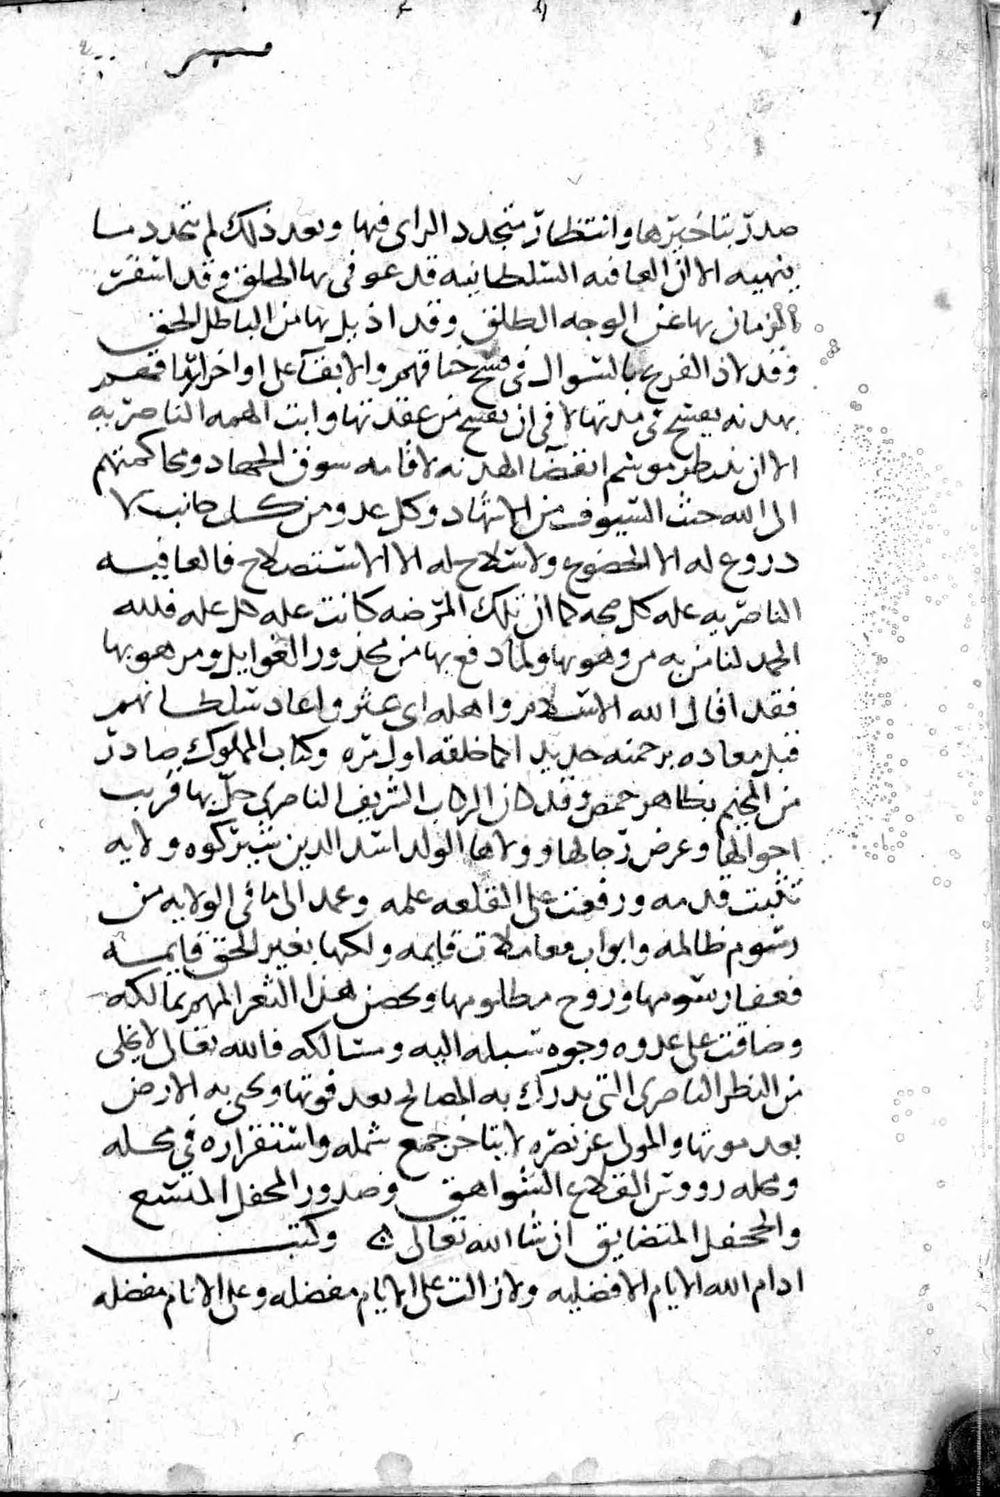 صدر بتاخيرها وانتظار متجدد الراى فيها وبعد ذلك لم يتجدد ما
ينهيه الا ان العافيه السلطانيه قد عوفى بها الخلق وقد اسفر
الزمان بها عن الوجه الطلق وقد اذيل بها من الباطل الحق
وقد لاذ الفرنج بالسوال فى فسح خناقهم والابقا على اواخر ارماقهم
بهدنه يفسح فى مدتها لا فى ان يفسح من عقدتها وابت الهمه الناصريه
الا ان ينتظر موسم انقضا الهدنه لاقامه سوق الجهاد ومحاكمتهم
الى الله حيث السيوف من الاشهاد وكل عدو من كل جانب لا
دروع له الا الخضوع ولا سلاح له الا الاستصلاح فالعافيه
الناصريه عله كل صحه كما ان تلك المرضه كانت عله كل عله فلله
الحمد لما من به من وهوبها ولما دفع بها من محذور الغوايل ومرهوبها
فقد اقال الله الاسلام واهله اى عثر واعاد سلطانهم
قبل معاده برحمته جديدا كما خلقه اول مره وكتاب المملوك صادر
من المخيم بظاهر حمص وقد كان الركاب الشريف الناصرى حل بها فرتب
احوالها وعرض رجالها وولاها الولد اسد الدين شيركوه ولايه
تثبت قدمه ورفعت على القلعه علمه وعمد الى ما فى الولايه من
رسوم ظالمه وابواب معاملات قايمه ولكنها بغير الحق قايمه
فعفا رسومها وروح مظلومها وتحصن هذا الثغر المهم بمالكه
وضاقت على عدوه وجوه سبله اليه ومسالكه فالله تعالى لا يخلى
من النظر الناصرى التى يدرك به المصالح بعد فوتها ويحيى به الارض
بعد موتها والمولى عز نصره لا يتاخر جمع شمله واستقراره فى محله
ومحله رووس القلاع الشواهق وصدور المحفل المتسع
والجحفل المتضايق ان شا الله تعالى ۞ وكتب
ادام الله الايام الافضليه ولا زالت على الايام مفضله وعلى الانام مفضله